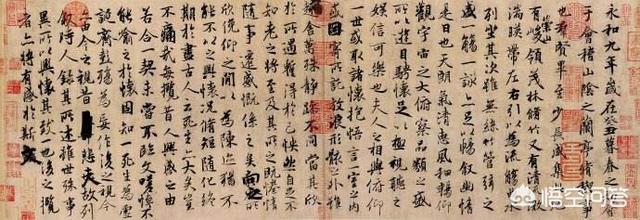 永和九年歲在癸丑暮春之初會
于會稽山陰之蘭亭脩稧事
也羣賢畢至少長咸集此地
有崇山峻領茂林脩竹又有清流激
湍暎帶左右引以為流觴曲水
列坐其次雖無絲竹管弦之
盛一觴一詠亦足以暢敘幽情
是日也天朗氣清惠風和暢仰
觀宇宙之大俯察品類之盛
所以遊目騁懷足以極視聽之
娛信可樂也夫人之相與俯仰
一世或取諸懷抱悟言一室之內
或因寄所託放浪形骸之外雖
趣舍萬殊靜躁不同當其欣
於所遇暫得於己怏然自足不
知老之將至及其所之既惓情
隨事遷感慨係之矣向之所
欣俛仰之間以為陳迹猶不
能不以之興懷況脩短隨化終
期於盡古人云死生亦大矣豈
不痛哉每攬昔人興感之由
若合一契未嘗不臨文嗟悼不
能喻之於懷固知一死生為虛
誕齊彭殤為妄作後之視今
亦由今之視昔悲夫故列
敘時人錄其所述雖世殊事
異所以興懷其致一也後之攬
者亦將有感於斯文
悟空问答